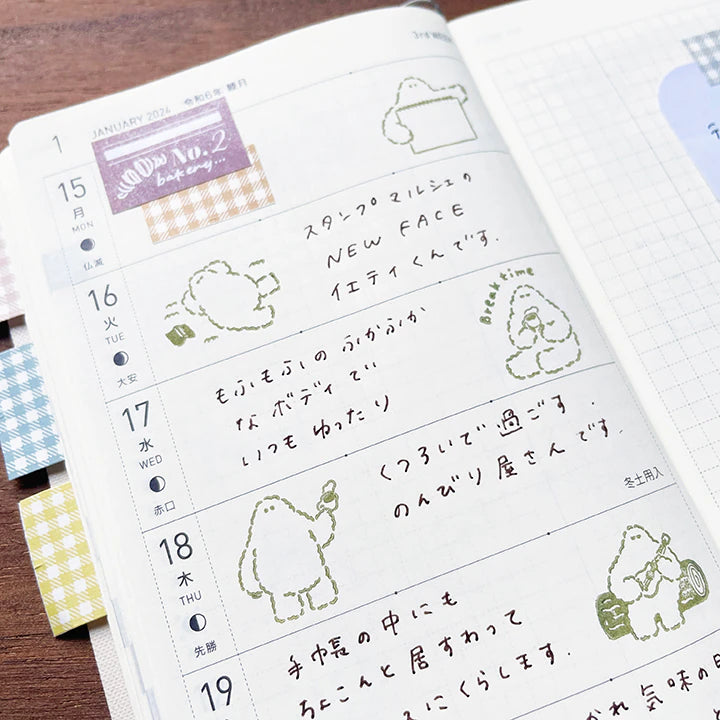 3rd WEEK
1 JANUARY 2024 令和6年 睦月
No.2
bakery...
15
月
MON
仏滅
スタンプマルシェの
NEW FACE
イエティくんです.
16
火
TUE
大安
Break time
もふもふの ふかふか
なボディで
いつも ゆったり
17
水
WED
赤口
くつろいで 過ごす.
のんびり屋さんです.
冬土用入
18
木
THU
先勝
手帳の中にも
ちょこんと居すわって
にくらします.
19
れ気味の